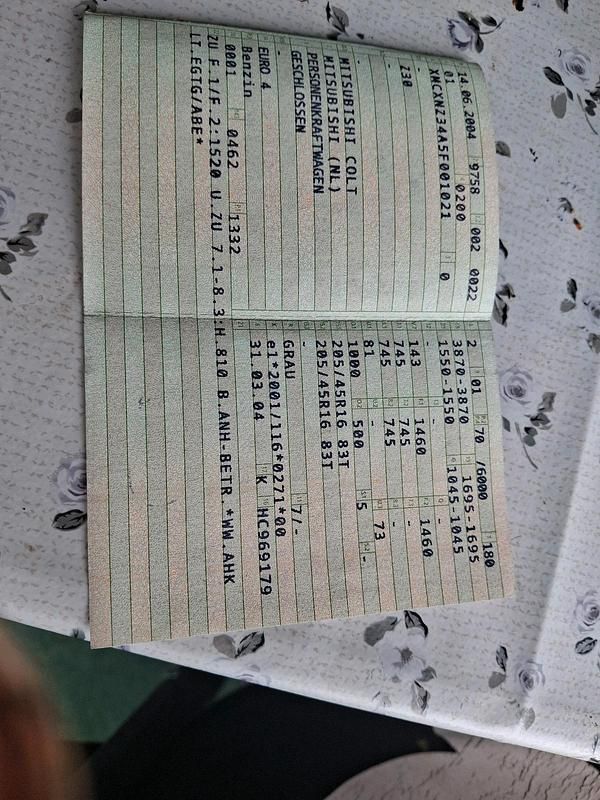 14.06.2004 9758 002 0022
01 0200
XMCXNZ34A5F001021 0
-
Z30
-
MITSUBISHI COLT
MITSUBISHI (NL)
PERSONENKRAFTWAGEN
GESCHLOSSEN
-
EURO 4
Benzin
0001 0462 1332
2 01 70 /6000 180
3870-3870 1695-1695
1550-1550 1045-1045
- - -
143 1460 1460
745 745 -
745 745 -
81 - 73
1000 500 5 -
205/45R16 83T
205/45R16 83T
-
GRAU 7/-
e1*2001/116*0271*00
31.03.04 K HC969179
ZU F.1/F.2:1520 U.ZU 7.1-8.3:H.810 B.ANH-BETR.*WW.AHK
LT.EGTG/ABE*